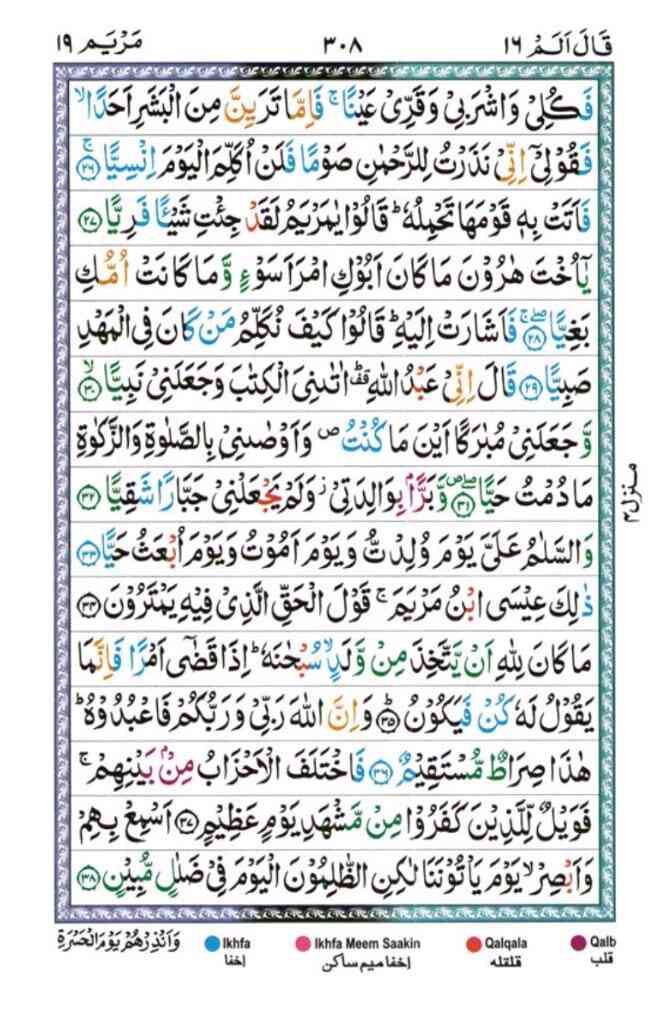 قَالَ اَلَمْ ١٦ ٣٠٨ مَرْيَم ١٩
فَكُلِیْ وَاشْرَبِیْ وَقَرِّیْ عَیْنًا ۚ فَاِمَّا تَرَیِنَّ مِنَ الْبَشَرِ اَحَدًا ۙ
فَقُوْلِیْۤ اِنِّیْ نَذَرْتُ لِلرَّحْمٰنِ صَوْمًا فَلَنْ اُكَلِّمَ الْیَوْمَ اِنْسِیًّا ۚ ﴿۲۶﴾
فَاَتَتْ بِهٖ قَوْمَهَا تَحْمِلُهٗ ؕ قَالُوْا یٰمَرْیَمُ لَقَدْ جِئْتِ شَیْـًٔا فَرِیًّا ﴿۲۷﴾
یٰۤاُخْتَ هٰرُوْنَ مَا كَانَ اَبُوْكِ امْرَاَ سَوْءٍ وَّ مَا كَانَتْ اُمُّكِ
بَغِیًّا ﴿۲۸﴾ ۖۚ فَاَشَارَتْ اِلَیْهِ ؕ قَالُوْا كَیْفَ نُكَلِّمُ مَنْ كَانَ فِی الْمَهْدِ
صَبِیًّا ﴿۲۹﴾ قَالَ اِنِّیْ عَبْدُ اللّٰهِ ؕ۫ اٰتٰىنِیَ الْكِتٰبَ وَجَعَلَنِیْ نَبِیًّا ۙ ﴿۳۰﴾
وَّجَعَلَنِیْ مُبٰرَكًا اَیْنَ مَا كُنْتُ ۪ وَاَوْصٰنِیْ بِالصَّلٰوةِ وَالزَّكٰوةِ
مَا دُمْتُ حَیًّا ﴿۳۱﴾ ۪ۖ وَّبَرًّۢا بِوَالِدَتِیْ ؗ وَلَمْ یَجْعَلْنِیْ جَبَّارًا شَقِیًّا ﴿۳۲﴾
وَالسَّلٰمُ عَلَیَّ یَوْمَ وُلِدْتُّ وَیَوْمَ اَمُوْتُ وَیَوْمَ اُبْعَثُ حَیًّا ﴿۳۳﴾
ذٰلِكَ عِیْسَی ابْنُ مَرْیَمَ ۚ قَوْلَ الْحَقِّ الَّذِیْ فِیْهِ یَمْتَرُوْنَ ﴿۳۴﴾
مَا كَانَ لِلّٰهِ اَنْ یَّتَّخِذَ مِنْ وَّلَدٍ ۙ سُبْحٰنَهٗ ؕ اِذَا قَضٰۤی اَمْرًا فَاِنَّمَا
یَقُوْلُ لَهٗ كُنْ فَیَكُوْنُ ؕ ﴿۳۵﴾ وَاِنَّ اللّٰهَ رَبِّیْ وَرَبُّكُمْ فَاعْبُدُوْهُ ؕ
هٰذَا صِرَاطٌ مُّسْتَقِیْمٌ ﴿۳۶﴾ فَاخْتَلَفَ الْاَحْزَابُ مِنْۢ بَیْنِهِمْ ۚ
فَوَیْلٌ لِّلَّذِیْنَ كَفَرُوْا مِنْ مَّشْهَدِ یَوْمٍ عَظِیْمٍ ﴿۳۷﴾ اَسْمِعْ بِهِمْ
وَاَبْصِرْ ۙ یَوْمَ یَاْتُوْنَنَا لٰكِنِ الظّٰلِمُوْنَ الْیَوْمَ فِیْ ضَلٰلٍ مُّبِیْنٍ ﴿۳۸﴾
منزل ۴
وَاَنْذِرْهُمْ یَوْمَ الْحَسْرَةِ
Ikhfa Ikhfa Meem Saakin Qalqala Qalb
اخفا اخفا میم ساکن قلقله قلب